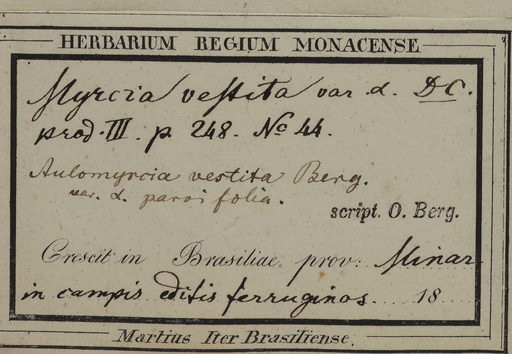 HERBARIUM REGIUM MONACENSE
Myrcia vestita var α. DC.
prod. III. p. 248. No 44.
Aulomyrcia vestita Berg.
var. α. parvifolia.
script. O. Berg.
Crescit in Brasiliae prov: Minar
in campis editis ferruginos. 18
Martius Iter Brasiliense.